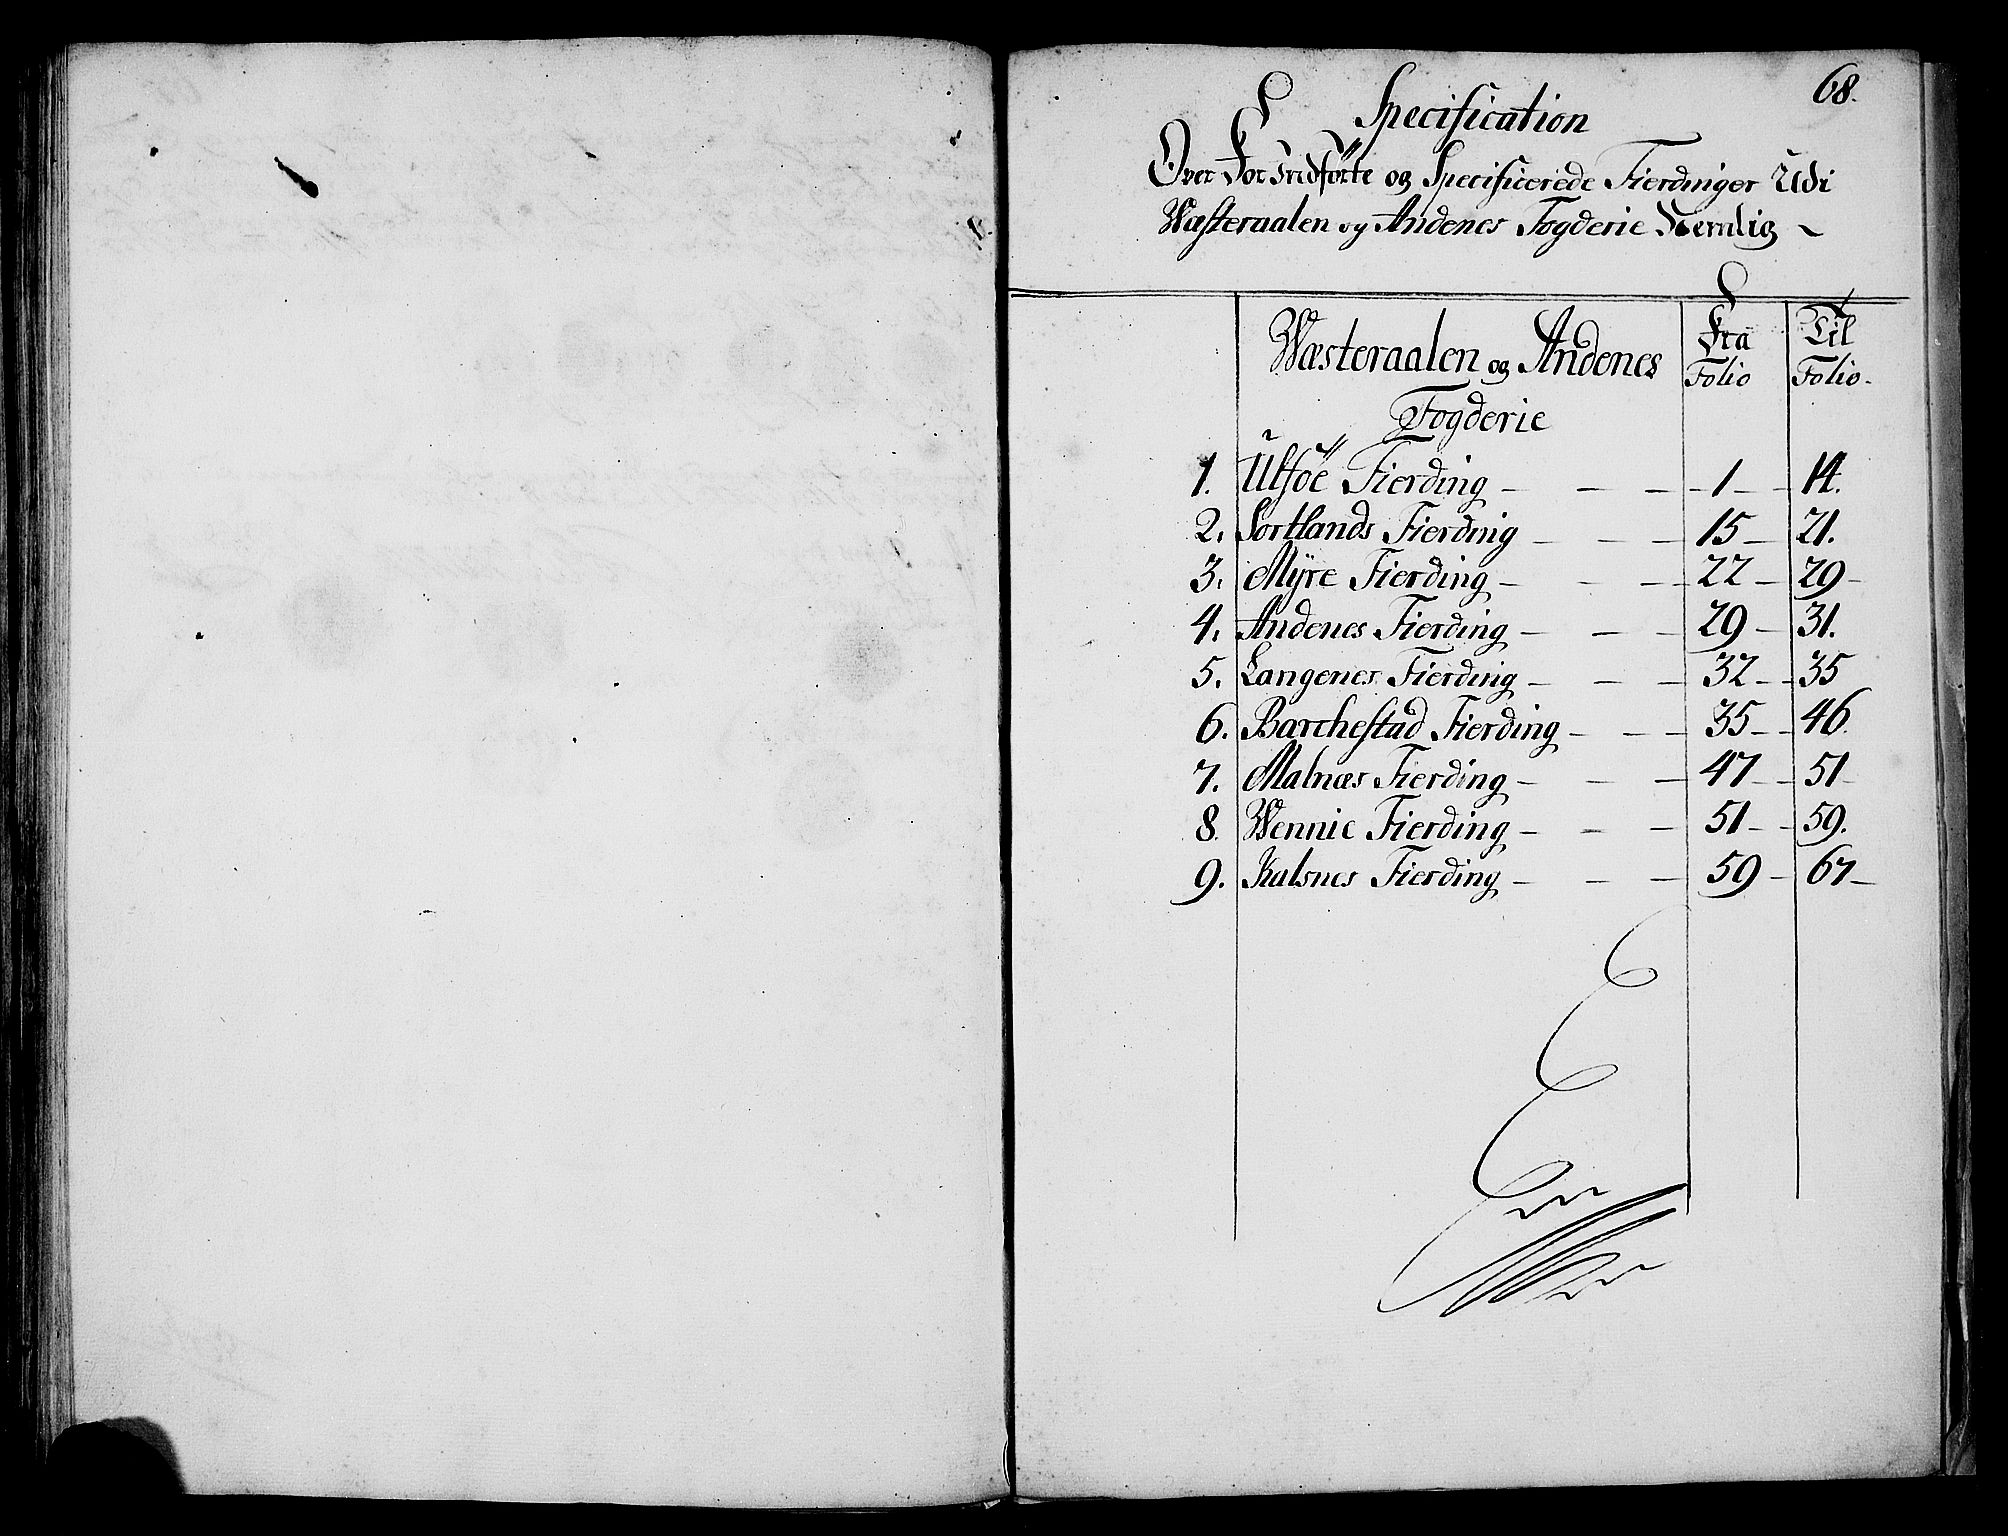 68.
Specification
Over For Indførte og Specificerede Fierdinger Udi
Wæsteraalen og Andenes Fogderie Nemlig ~
Wæsteraalen og Andenes Fogderie Fra Folio Til Folio.
1. Ulföe Fierding - - - 1 - 14.
2. Sortlands Fierding - - - 15 - 21.
3. Mÿre Fierding - - - 22 - 29 -
4. Andenes Fierding - - - 29 - 31.
5. Langenes Fierding - - - 32 - 35
6. Barchestad Fierding - - - 35 - 46.
7. Malnæs Fierding - - - 47 - 51 -
8. Wennie Fierding - - - 51 - 59.
9. Kalsnes Fierding - - - 59 - 67 -